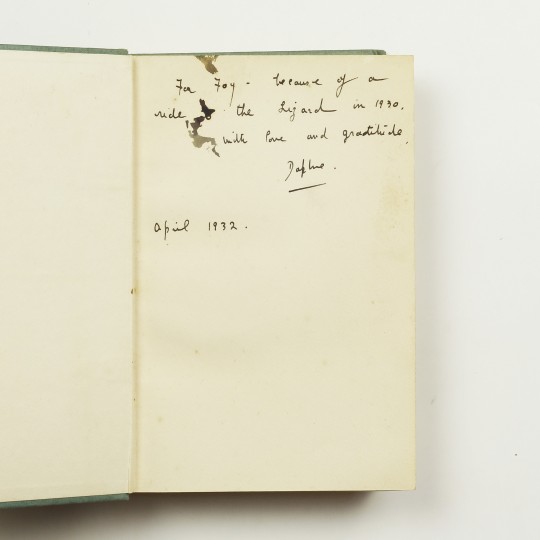 For Foy - because of a
ride to the Lizard in 1930.
with love and gratitude.
Daphne.
April 1932.